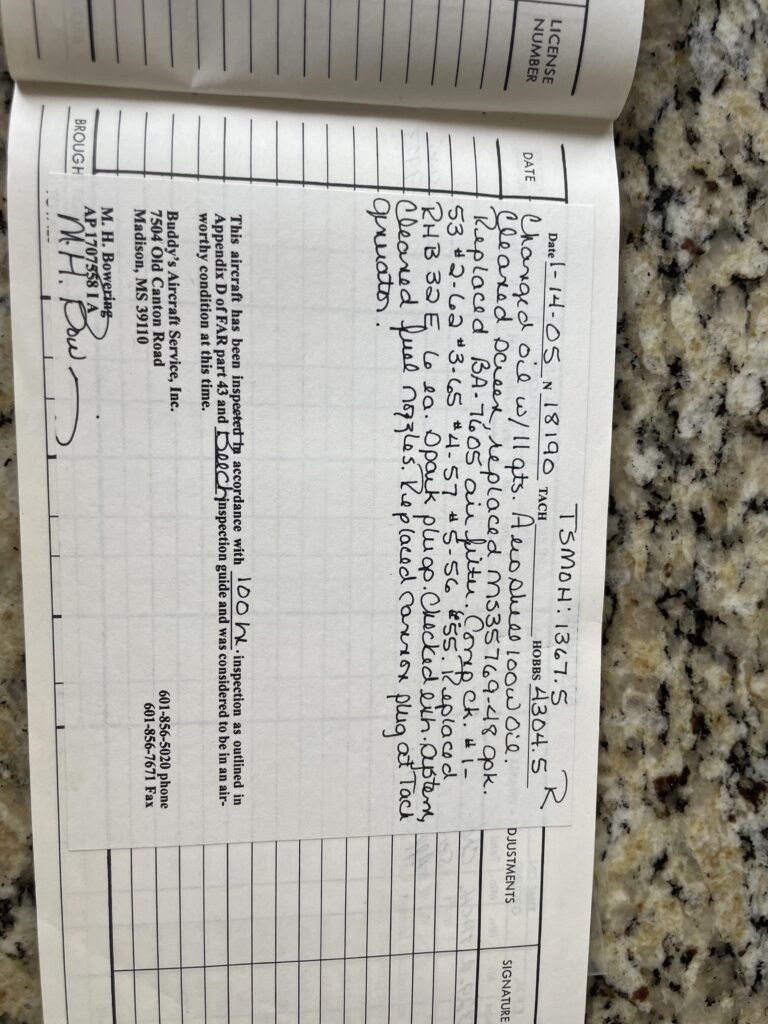 LICENSE
NUMBER
DATE
DJUSTMENTS
SIGNATURE
BROUGH
TSMOH: 1367.5 R
Date 1-14-05 N 18190 TACH HOBBS 4304.5
Changed oil w/11 qts. Aeroshell 100W oil.
Cleaned screen, replaced MS35769-48 gsk.
Replaced BA-7605 air filter. Comp ck. #1-
53 #2-62 #3-65 #4-57 #5-56 6-55. Replaced
RHB 32 E 6 ea. Spark plugs. Checked exh. system,
Cleaned fuel nozzles. Replaced cannon plug at Tach
generator.
This aircraft has been inspected in accordance with 100 hr. inspection as outlined in
Appendix D of FAR part 43 and Beech inspection guide and was considered to be in an air-
worthy condition at this time.
Buddy's Aircraft Service, Inc. 601-856-5020 phone
7504 Old Canton Road 601-856-7671 Fax
Madison, MS 39110
M. H. Bowering
AP 1707558 I A
M. H. Bow